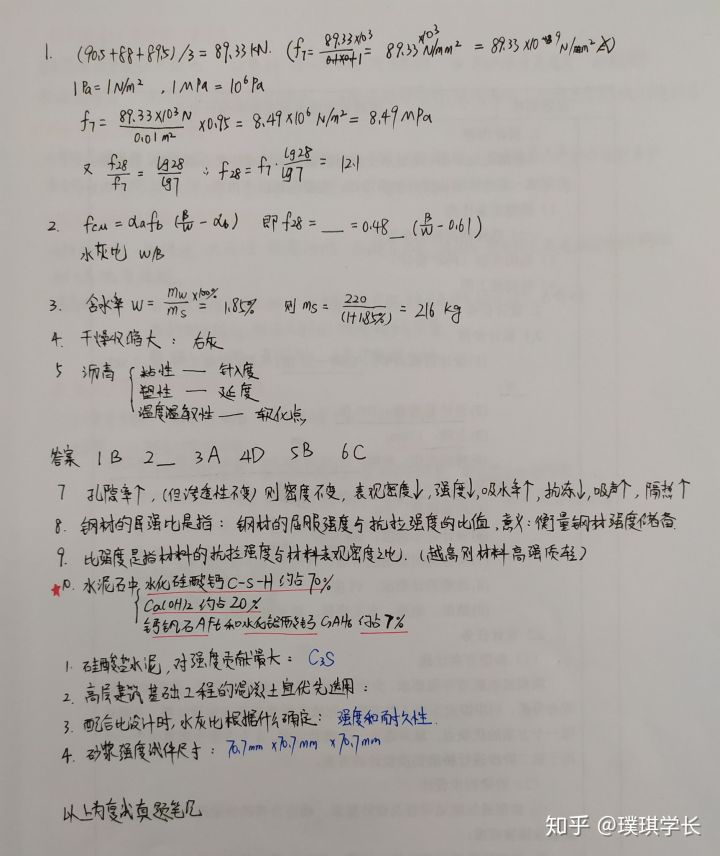 1. (90.5+88+89.5)/3=89.33KN. (f7=89.33×10³/0.1×0.1=89.33×10³N/mm²=89.33×10⁻⁹N/mm²
1Pa=1N/m², 1MPa=10⁶Pa
f7=89.33×10³N/0.01m²×0.95=8.49×10⁶N/m²=8.49MPa
又 f28/f7=lg28/lg7 ∴f28=f7·lg28/lg7=12.1
2. fcu=αafb(B/W-αb) 即f28=__=0.48_(B/W-0.61)
水灰比 W/B
3. 含水率W=mw/ms×100%=1.85% 则ms=220/(1+1.85%)=216 kg
4. 干燥收缩大:石灰
5 沥青 粘性——针入度
塑性——延度
温度 软化点
答案 1B 2_ 3A 4D 5B 6C
7 孔隙率↑,(但渗透性不变)则密度不变,表观密度↓,强度↓,吸水率↑,抗冻↓,吸声↑,隔热↑
8. 钢材的屈强比是指:钢材的屈服强度与抗拉强度的比值,意义:衡量钢材强度储备
9. 比强度是指材料的抗拉强度与材料表观密度之比.(越高则材料高强质轻)
10. 水泥石中 水化硅酸钙C-S-H约占70%
Ca(OH)2约占20%
钙钒石AFt和水化铝酸钙C3AH6约占7%
1. 硅酸盐水泥,对强度贡献最大:C3S
2. 高层建筑基础工程的混凝土宜优先选用:
3. 配合比设计时,水灰比根据什么确定:强度和耐久性.
4. 砂浆强度试件尺寸:70.7mm×70.7mm×70.7mm
以上为复试真题笔记
知乎 @璞琪学长